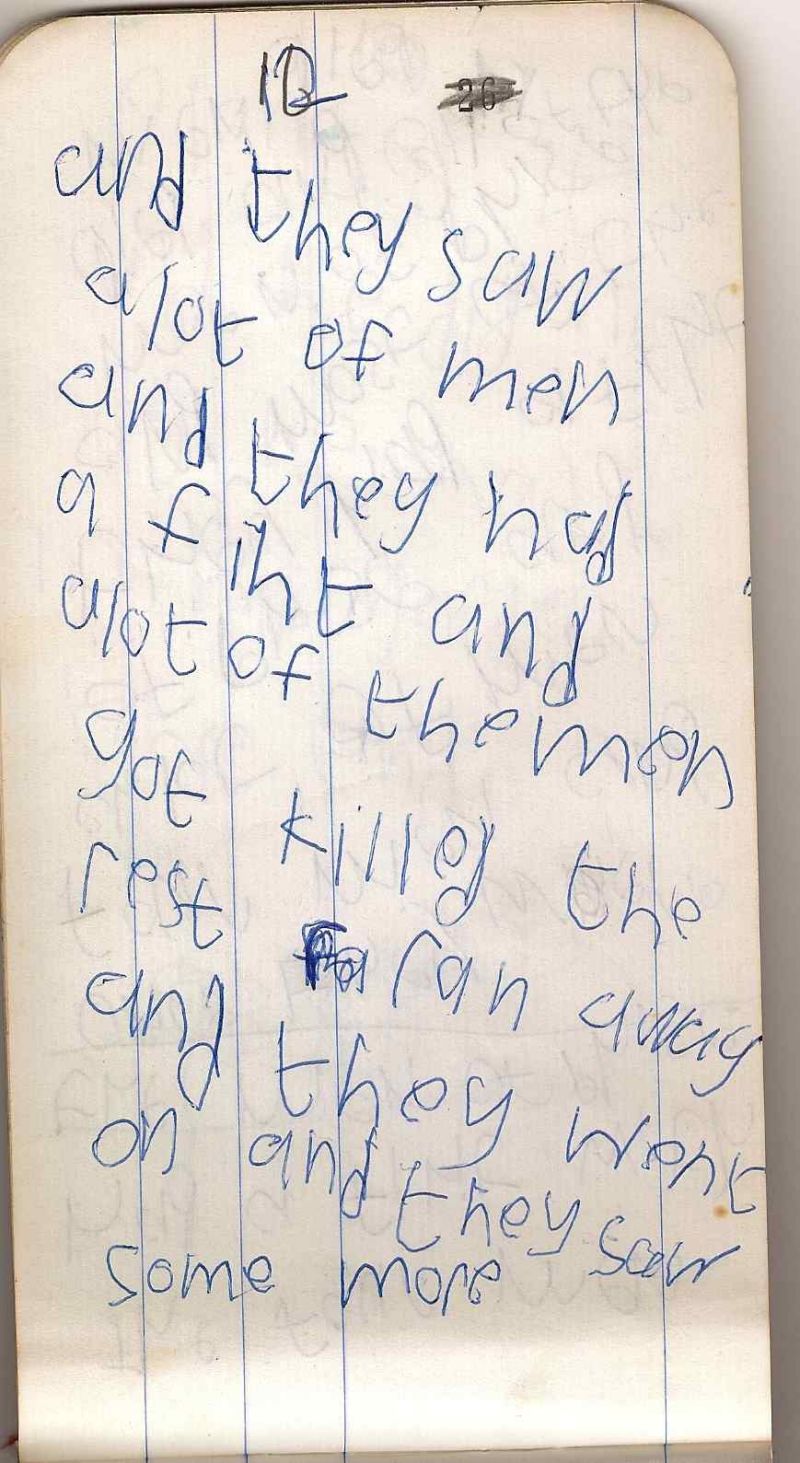 12 26
and they saw
alot of men
and they had
a fiht and
alot of themen
got killed the
rest ran away
and they went
on and they saw
some more